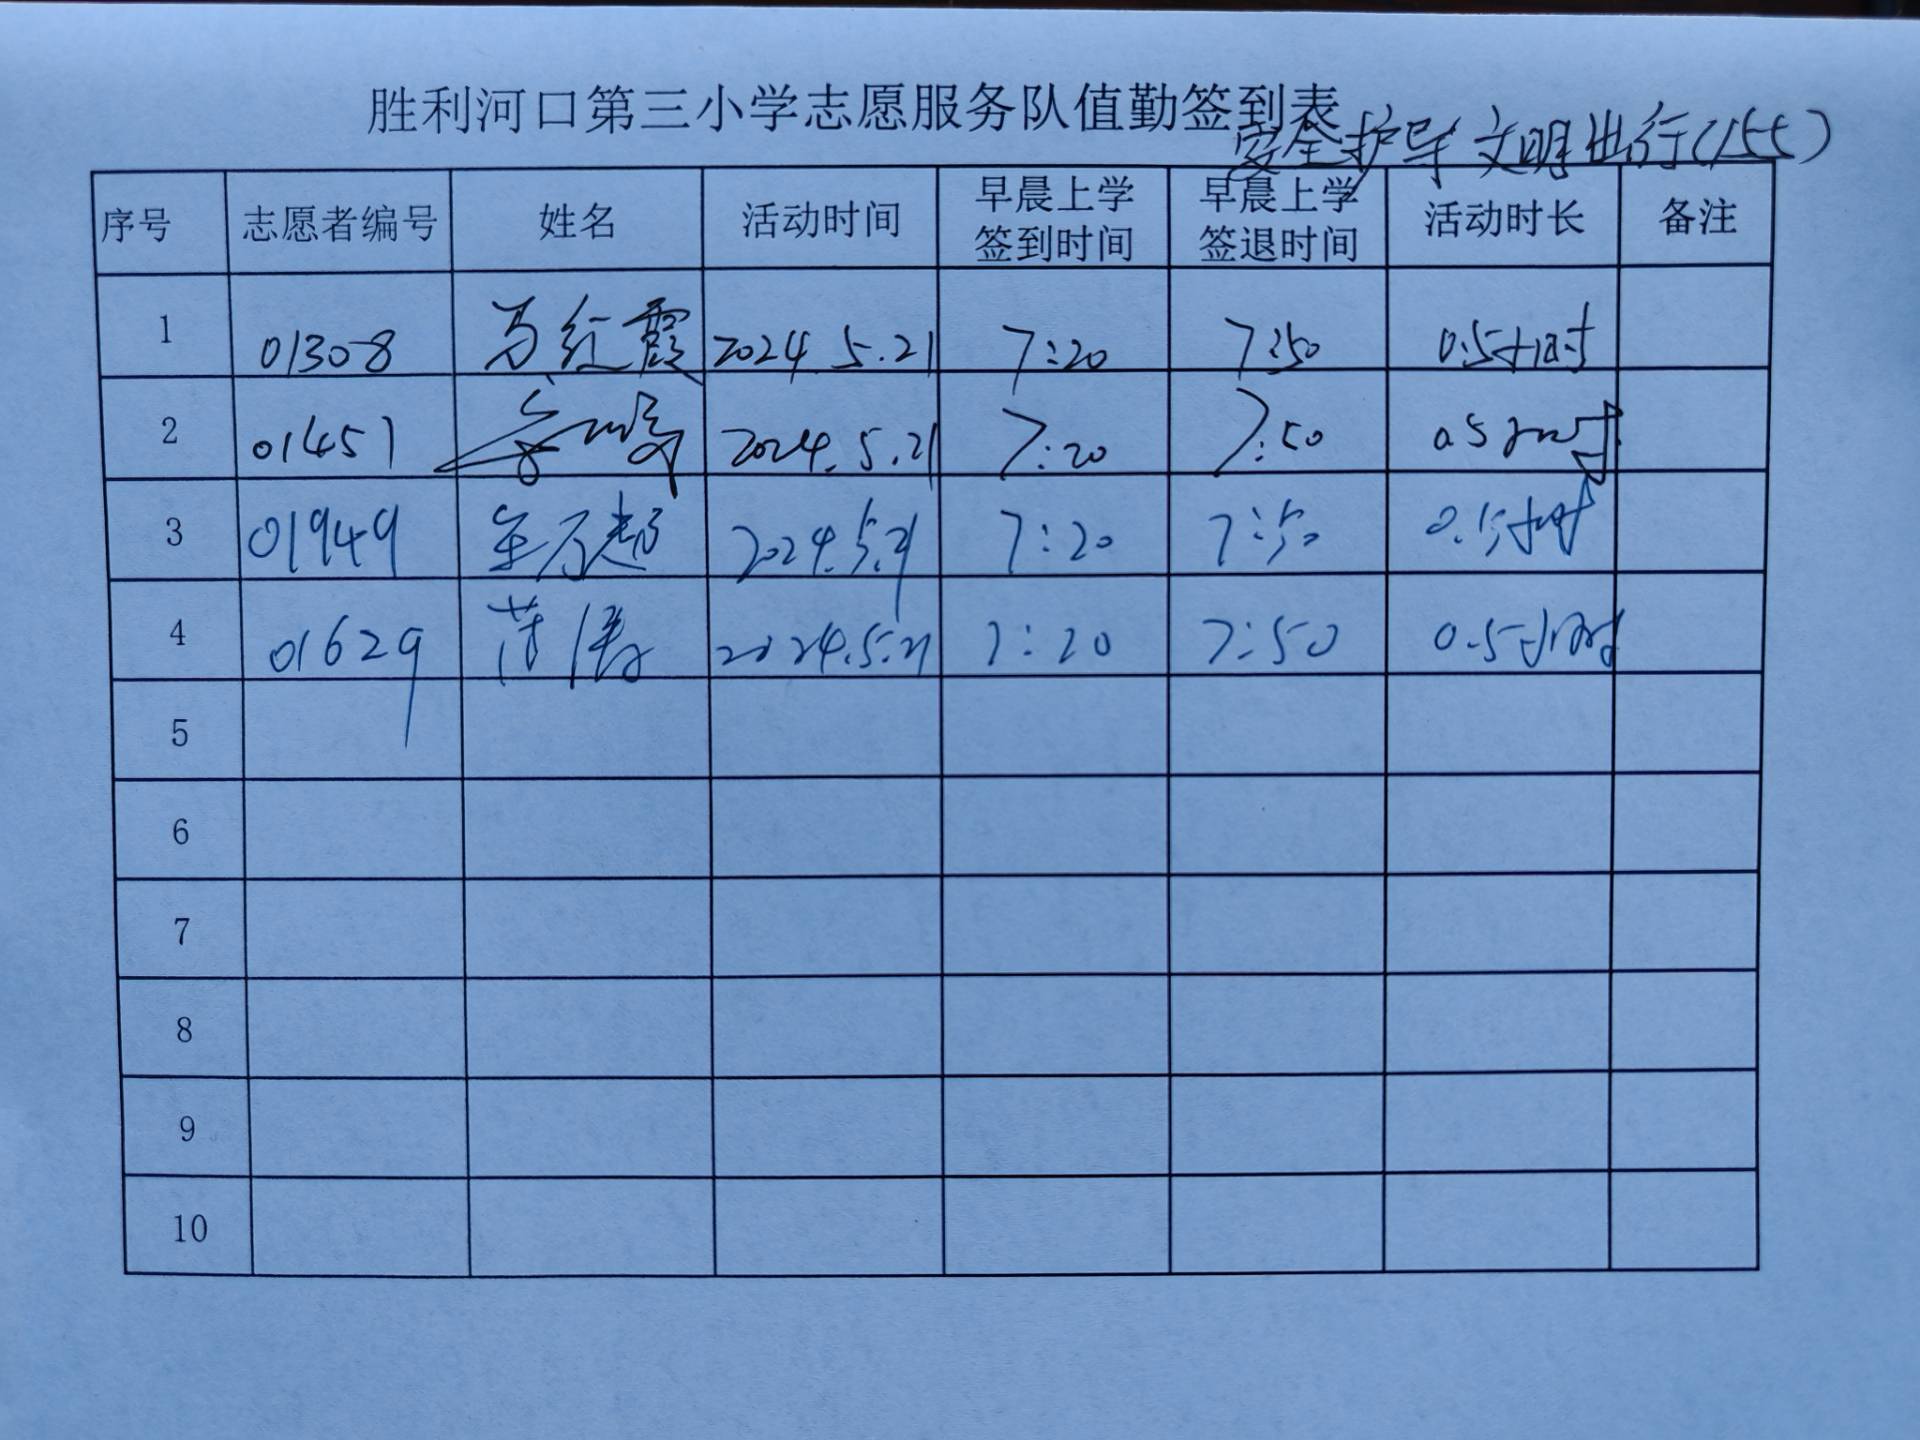 胜利河口第三小学志愿服务队值勤签到表
安全护导 文明出行(155)
序号 志愿者编号 姓名 活动时间 早晨上学签到时间 早晨上学签退时间 活动时长 备注
1 01308 红霞 2024.5.21 7:20 7:50 0.5小时
2 01451 2024.5.21 7:20 7:50 0.5小时
3 01949 2024.5.21 7:20 7:50 0.5小时
4 01629 2024.5.21 7:20 7:50 0.5小时
5
6
7
8
9
10